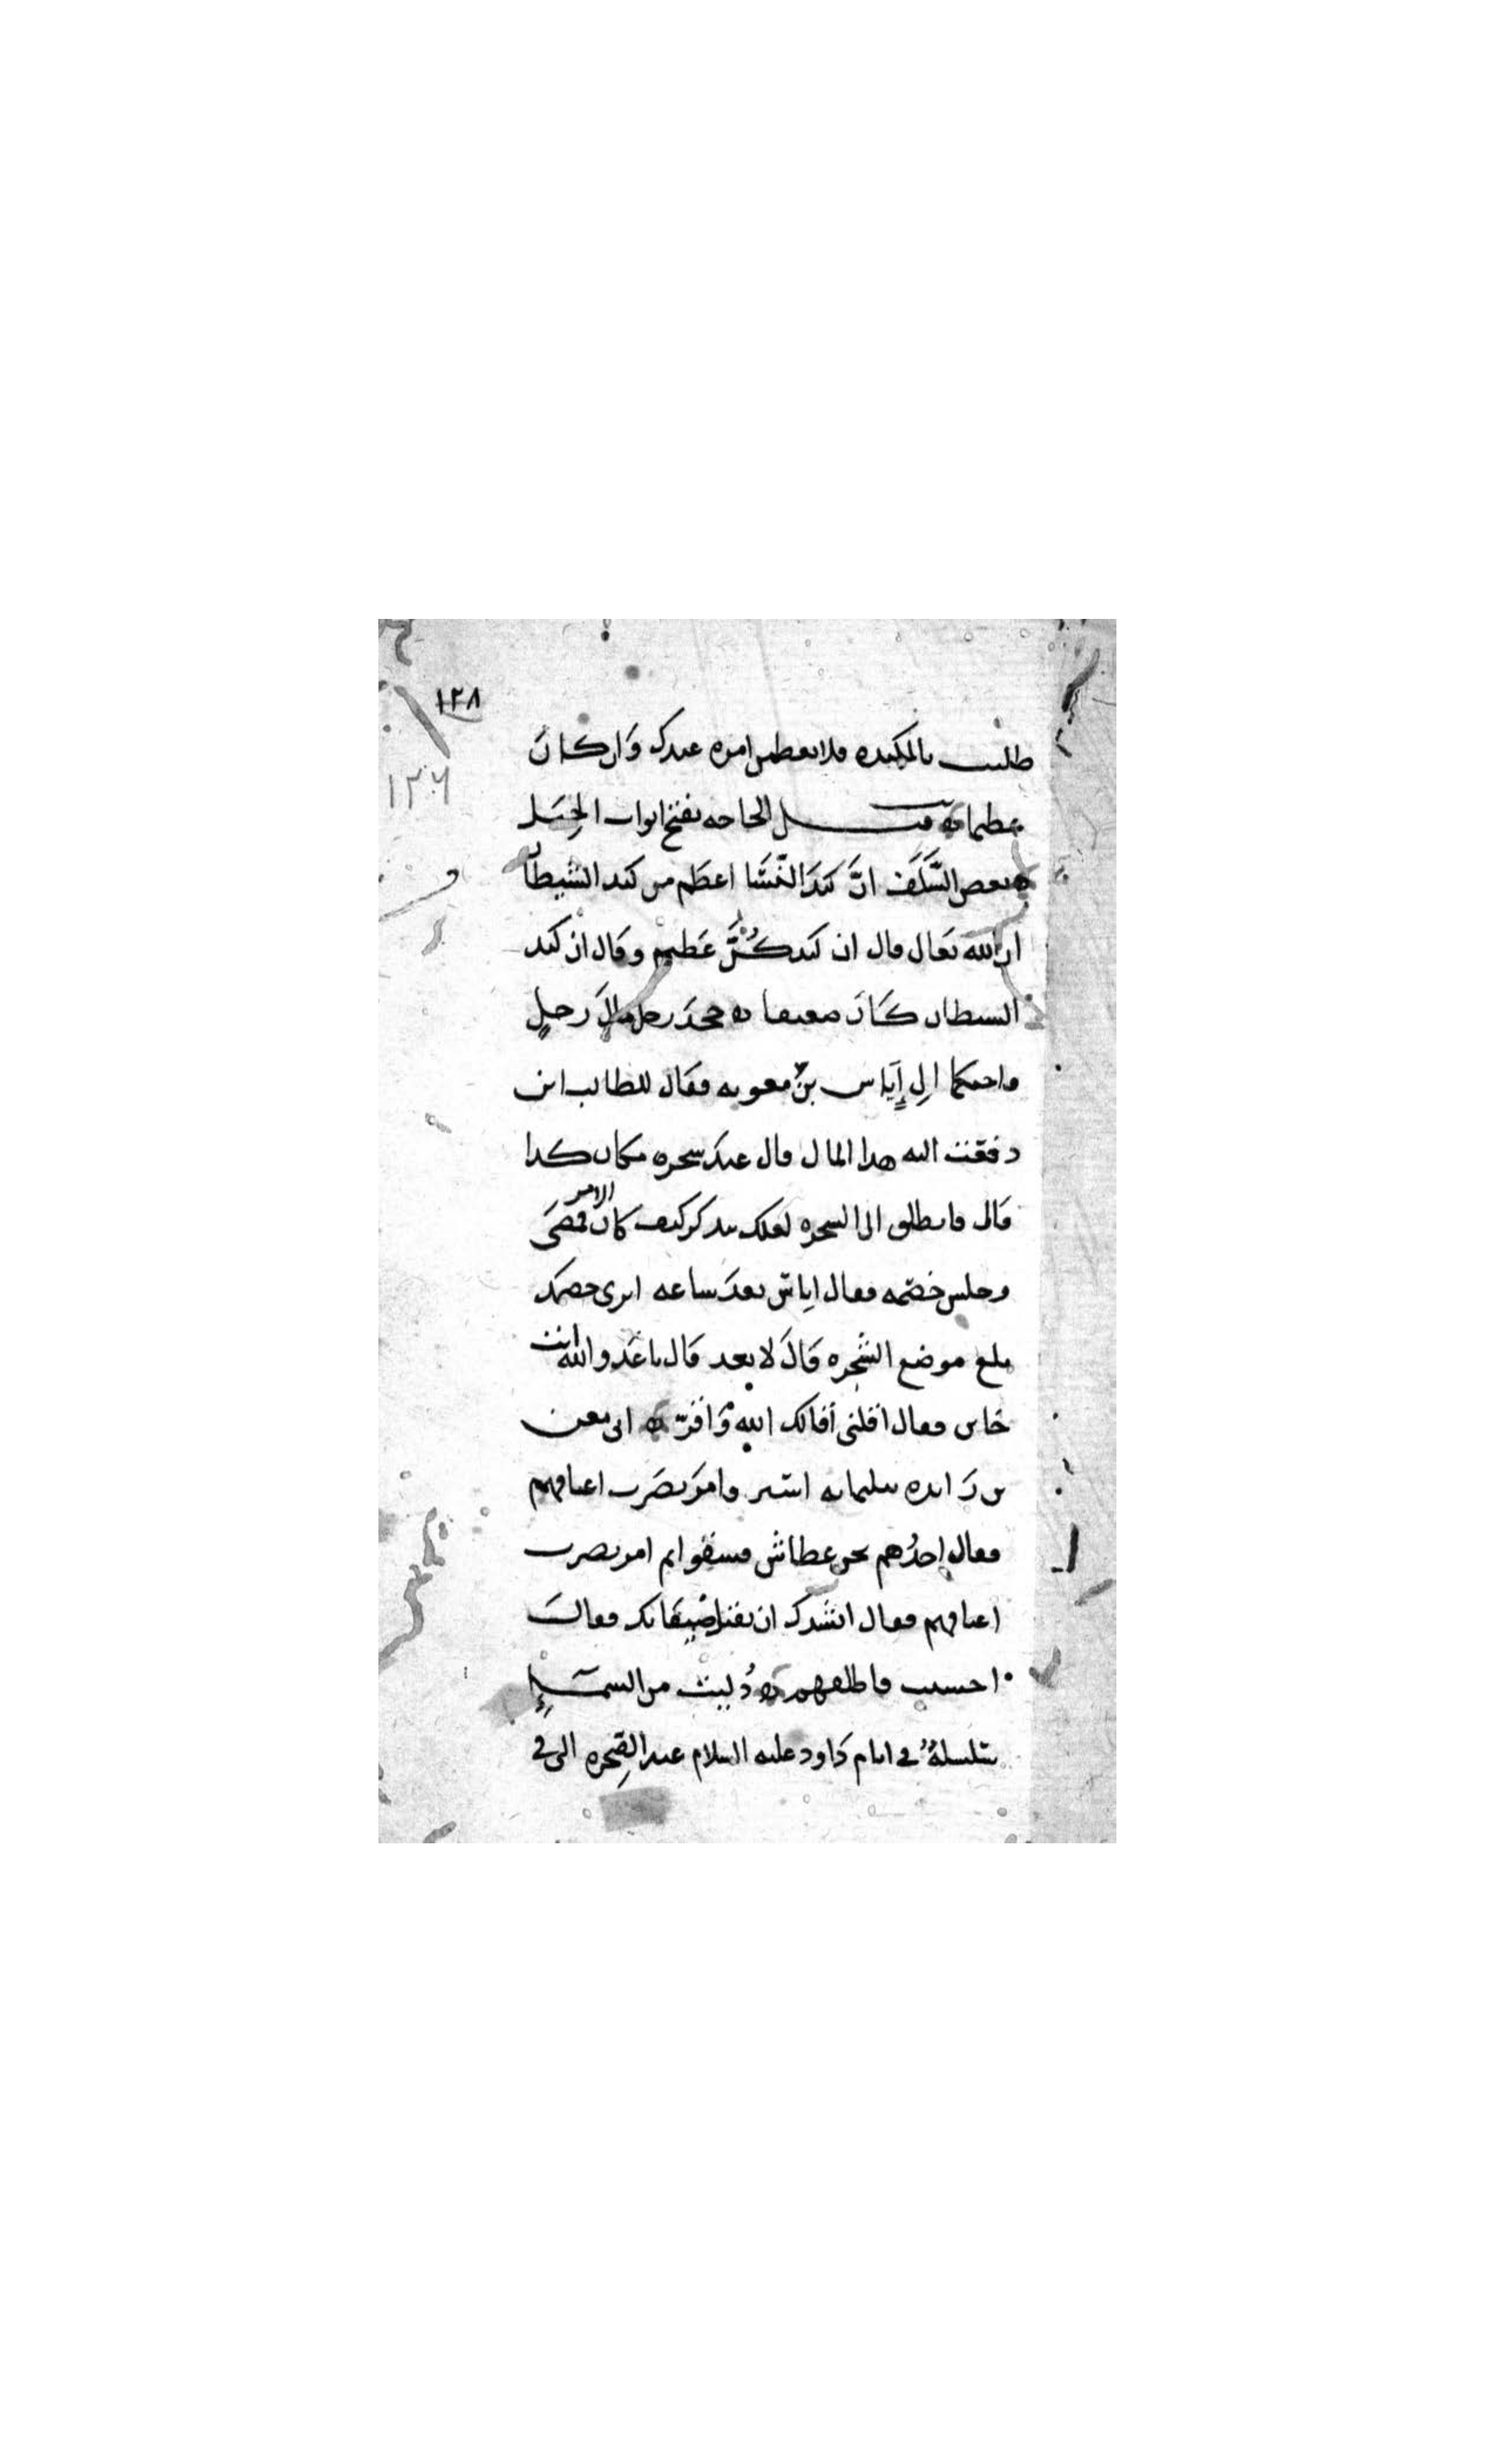 ١٢٨
١٢٦
طلبت بالمكيده فلا يعظمن امره عندك وان كان
عظيما ه قيل الحاجه تفتح ابواب الحيل
ه بعض السلف ان كيد النسا اعظم من كيد الشيطان
ان الله تعالى قال ان كيدكن عظيم وقال ان كيد
الشيطان كان ضعيفا ه جحد رجل مال رجل
فاحتكما الى إياس بن معويه فقال للطالب اين
دفعت اليه هذا المال قال عند شجره بمكان كذا
قال فانطلق الى الشجره لعلك تتذكر كيف كان الامر فمضى
وجلس خصمه فقال اياس بعد ساعه اترى خصمك
بلغ موضع الشجره قال لا بعد قال يا عدو الله انت
خاين فقال اقلنى أقالك الله واقرّ ه اتى معن
بن زايده بثلثمايه اسير فامر بضرب اعناقهم
فقال احدهم نحن عطاش فسقوا ثم امر بضرب
اعناقهم فقال انشدك ان تقتل ضيفانك فقال
احسنت فاطلقهم ه دليت من السمآء
سلسلة في ايام داود عليه السلام عند الصخره التى فى